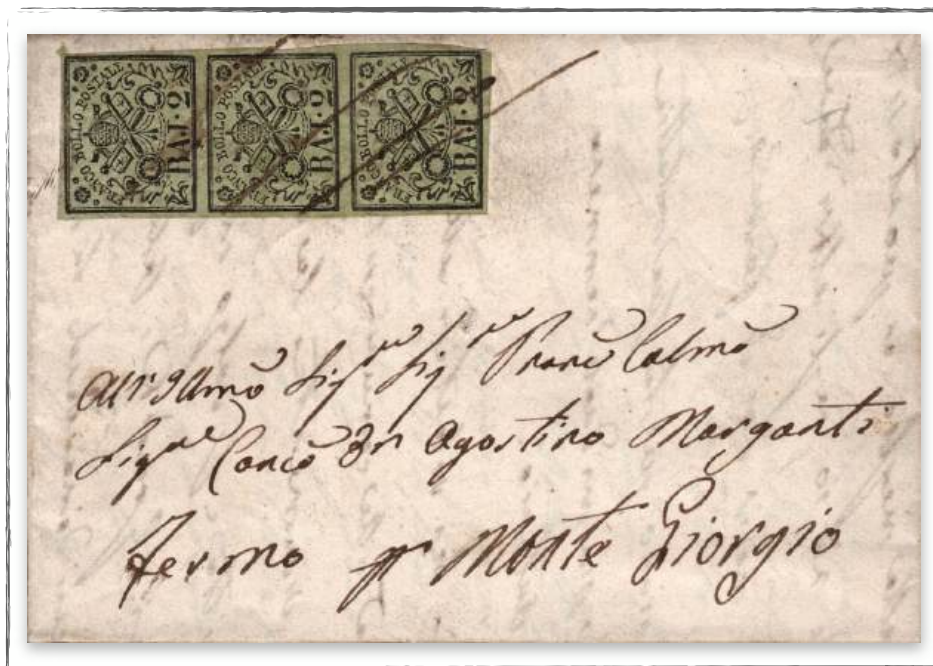 FRANCO BOLLO POSTALE BAJ·2
FRANCO BOLLO POSTALE BAJ·2
FRANCO BOLLO POSTALE BAJ·2
All' Illmo Sigre Sigre Prone Colmo
Sigre Agostino Morganti
Fermo pr Monte Giorgio